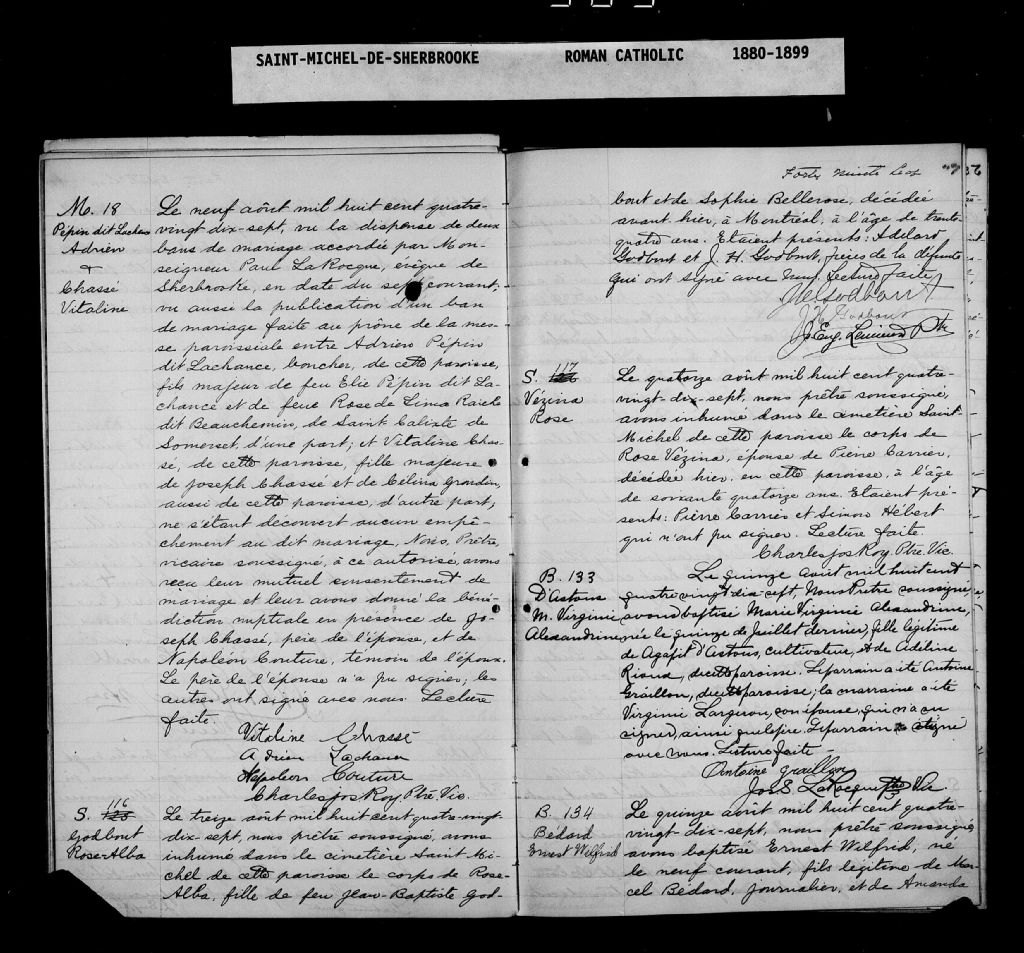 SAINT-MICHEL-DE-SHERBROOKE ROMAN CATHOLIC 1880-1899
M. 18
Pépin dit Lachance
Adrien
+
Chassé
Vitaline
Le neuf aôut mil huit cent quatre-
vingt dix-sept, vu la dispense de deux
bans de mariage accordée par Mon-
seigneur Paul LaRocque, évèque de
Sherbrooke, en date du sept courant;
vu aussi la publication d'un ban
de mariage faite au prône de la mes-
se paroissiale entre Adrien Pépin
dit Lachance, boucher, de cette paroisse,
fils majeur de feu Elie Pépin dit La-
chance et de feue Rose de Lima
dit Beauchemin, de Saint Calixte de
Somerset, d'une part; et Vitaline Chas-
sé, de cette paroisse, fille majeure
de Joseph Chassé et de Célina Grondin,
aussi de cette paroisse, d'autre part;
ne s'étant découvert aucun empê-
chement au dit mariage, Nous, Prêtre,
vicaire soussigné, à ce autorisé, avons
reçu leur mutuel consentement de
mariage et leur avons donné la béné-
diction nuptiale en présence de Jo-
seph Chassé, père de l'épouse, et de
Napoléon Couture, témoin de l'époux.
Le père de l'épouse n'a pu signer; les
autres ont signé avec nous Lecture
faite.
Vitaline Chassé
Adrien Lachance
Napoléon Couture
Charles Jos Roy, Ptre. Vic.
S. 116
Godbout
Rose-Alba
Le treize aôut mil huit cent quatre-vingt-
dix-sept, nous prêtre soussigné, avons
inhumé dans le cimetière Saint Mi-
chel de cette paroisse le corps de Rose-
Alba, fille de feu Jean-Baptiste God-
bout et de Sophie Bellerose, décédée
avant hier, à Montréal, à l'âge de trente
quatre ans. Etaient présents: Adelard
Godbout et J. H. Godbout, frères de la défunte
qui ont signé avec nous. Lecture faite
Godbout
J H Godbout
J. Eug. Lemieux Ptre
S. 117
Vézina
Rose
Le quatorze aôut mil huit cent quatre-
vingt-dix-sept, nous prêtre soussigné,
avons inhumé dans le cimetière Saint-
Michel de cette paroisse le corps de
Rose Vézina, épouse de Pierre Carrier,
décédée hier, en cette paroisse, à l'âge
de soixante quatorze ans. Etaient pré-
sents: Pierre Carrier et Simon Hébert
qui n'ont pu signer. Lecture faite.
Charles Jos Roy, Ptre. Vic.
B. 133
D'Astous
M. Virginie
Alexandrine
Le quinze aôut mil huit cent
quatre vingt dix sept, Nous Pretre soussigné
avons baptisé Marie Virginie Alexandrine,
née le quinze de Juillet dernier, fille légitime
de Agapit D'Astous, cultivateur, et de Adeline
Rioux, de cette paroisse. Le parrain a été Antoine
Graillon, de cette paroisse; la marraine a été
Virginie son épouse, qui n'a su
signer, ainsi que le père. Le parrain a signé
avec nous. Lecture faite -
Antoine graillon
Jos. S. LaRocque Ptre Vic.
B. 134
Bédard
Ernest Wilfrid
Le quinze aôut mil huit cent quatre-
vingt-dix-sept, nous prêtre soussigné
avons baptisé Ernest Wilfrid, né
le neuf courant, fils légitime de Mar-
cel Bédard, journalier, et de Amanda